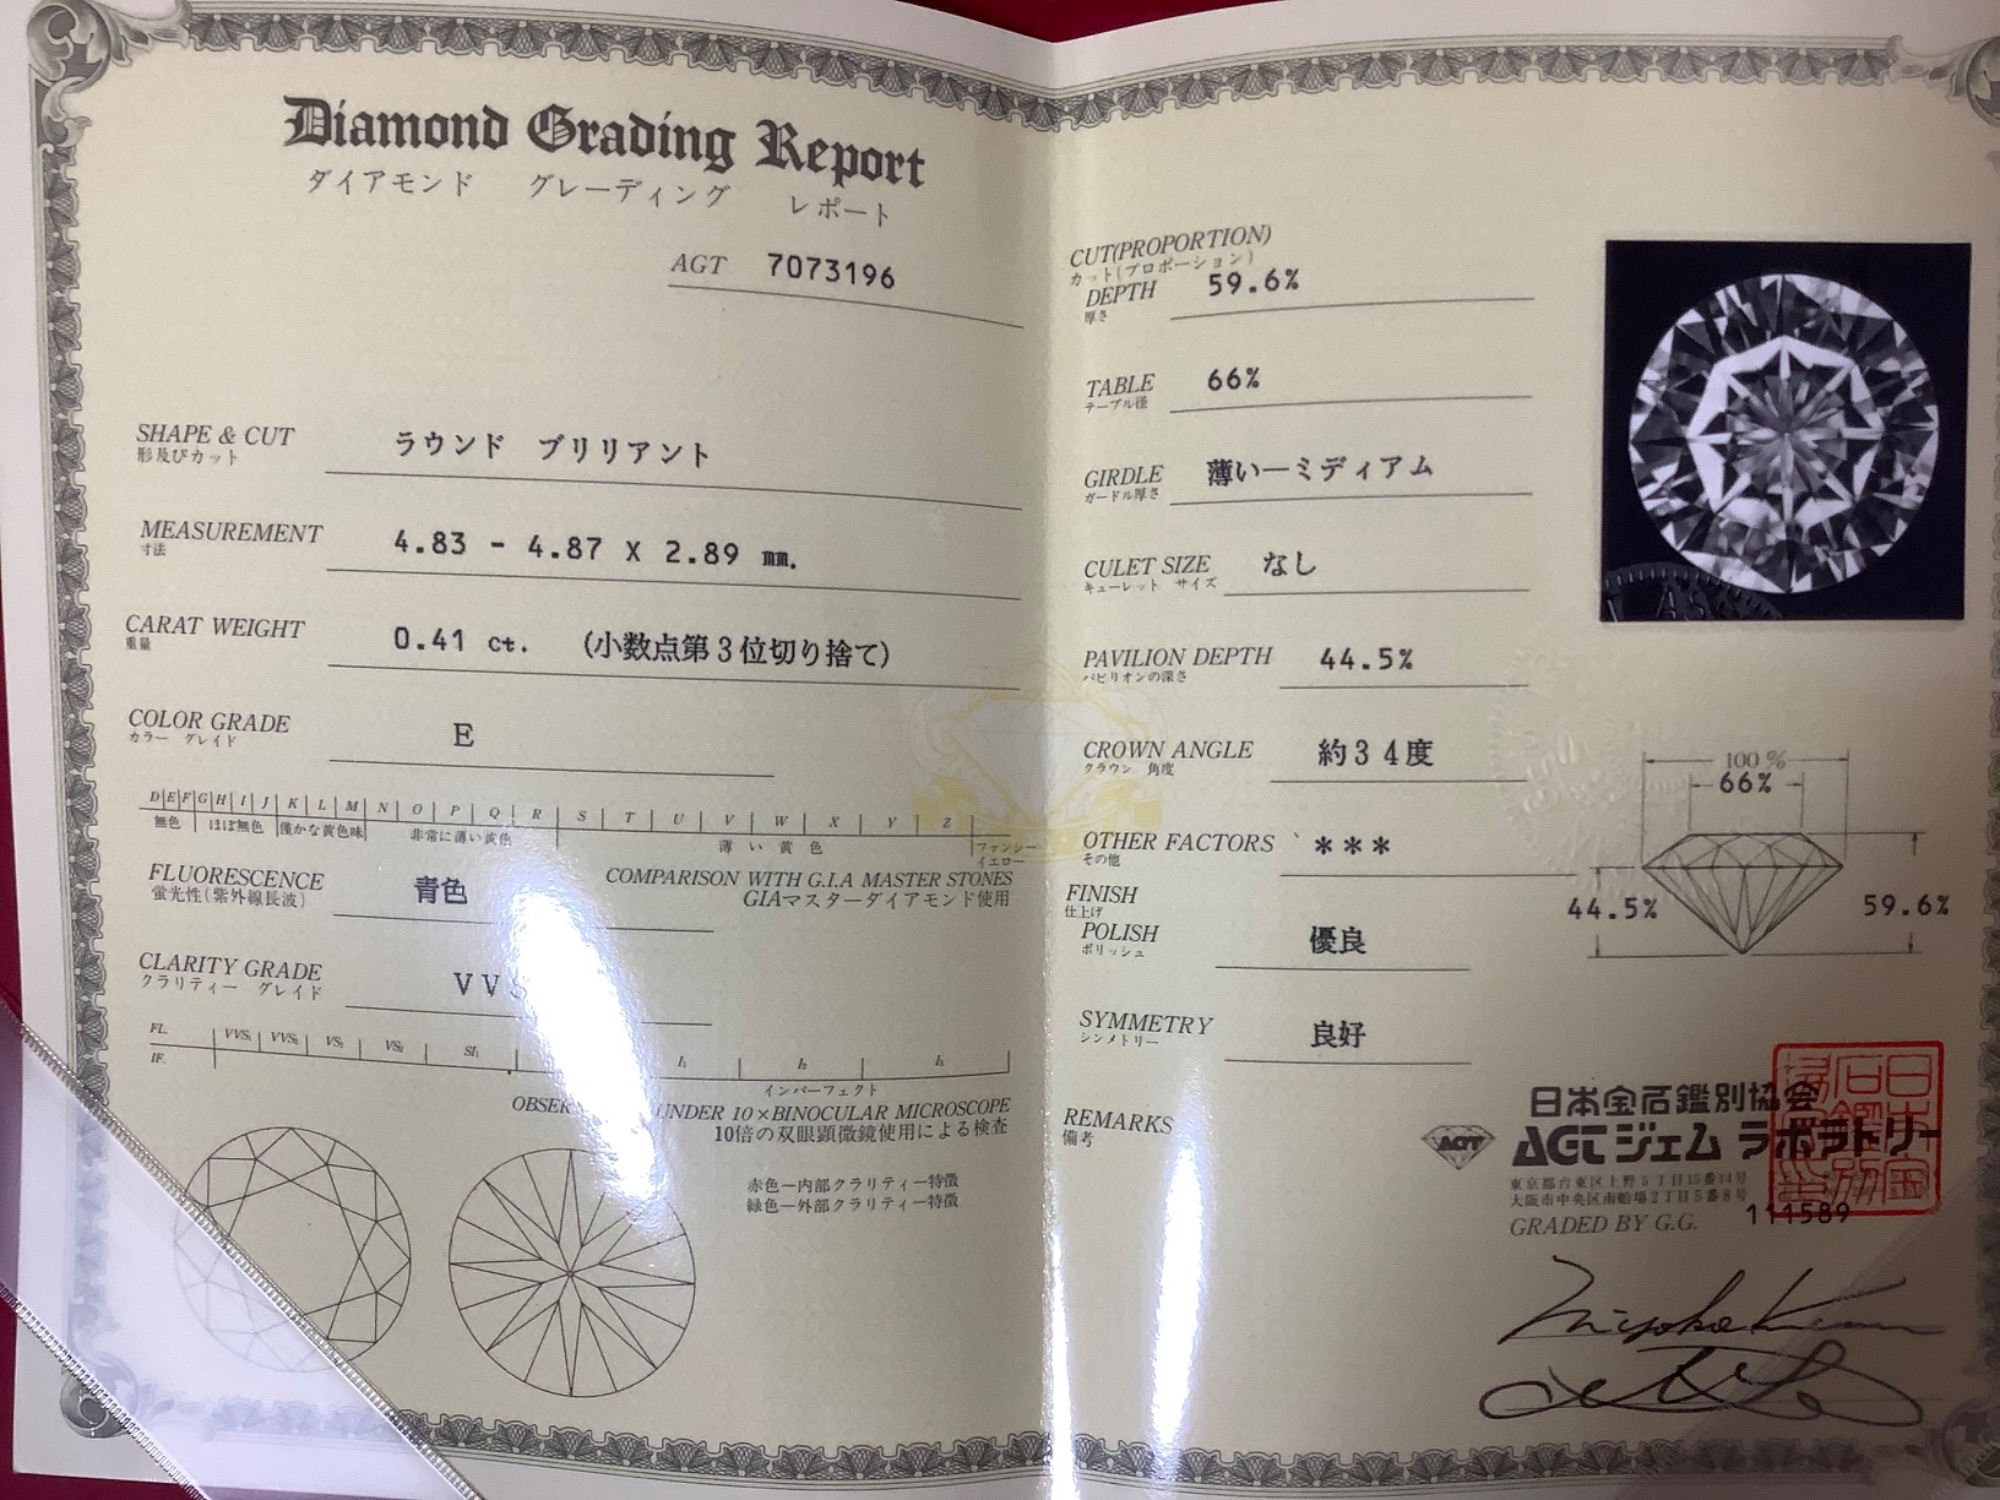 Diamond Grading Report
ダイアモンド グレーディング レポート
AGT 7073196
SHAPE & CUT ラウンド ブリリアント
形及びカット
MEASUREMENT 4.83 - 4.87 X 2.89 mm.
寸法
CARAT WEIGHT 0.41 ct. (小数点第3位切り捨て)
重量
COLOR GRADE E
カラー グレイド
D E F G H I J K L M N O P Q R S T U V W X Y Z
無色 ほぼ無色 僅かな黄色味 非常に薄い黄色 薄い黄色 ファンシー
イエロー
FLUORESCENCE 青色
蛍光性(紫外線長波)
COMPARISON WITH G.I.A MASTER STONES
GIAマスターダイアモンド使用
CLARITY GRADE VVS
クラリティー グレイド
FL. VVS₁ VVS₂ VS₁ VS₂ SI₁ I₁ I₂ I₃
IF.
インパーフェクト
UNDER 10×BINOCULAR MICROSCOPE
10倍の双眼顕微鏡使用による検査
赤色ー内部クラリティー特徴
緑色ー外部クラリティー特徴
CUT(PROPORTION)
カット(プロポーション)
DEPTH 59.6%
厚さ
TABLE 66%
テーブル径
GIRDLE 薄いーミディアム
ガードル厚さ
CULET SIZE なし
キューレット サイズ
PAVILION DEPTH 44.5%
パビリオンの深さ
CROWN ANGLE 約34度
クラウン 角度
OTHER FACTORS ***
その他
FINISH
仕上げ
POLISH 優良
ポリッシュ
SYMMETRY 良好
シンメトリー
REMARKS
備考
100%
66%
44.5%
59.6%
日本宝石鑑別協会
AGT AGTジェム ラボラトリー
東京都台東区上野5丁目15番14号
大阪市中央区南船場2丁目5番8号
GRADED BY G.G. 111589